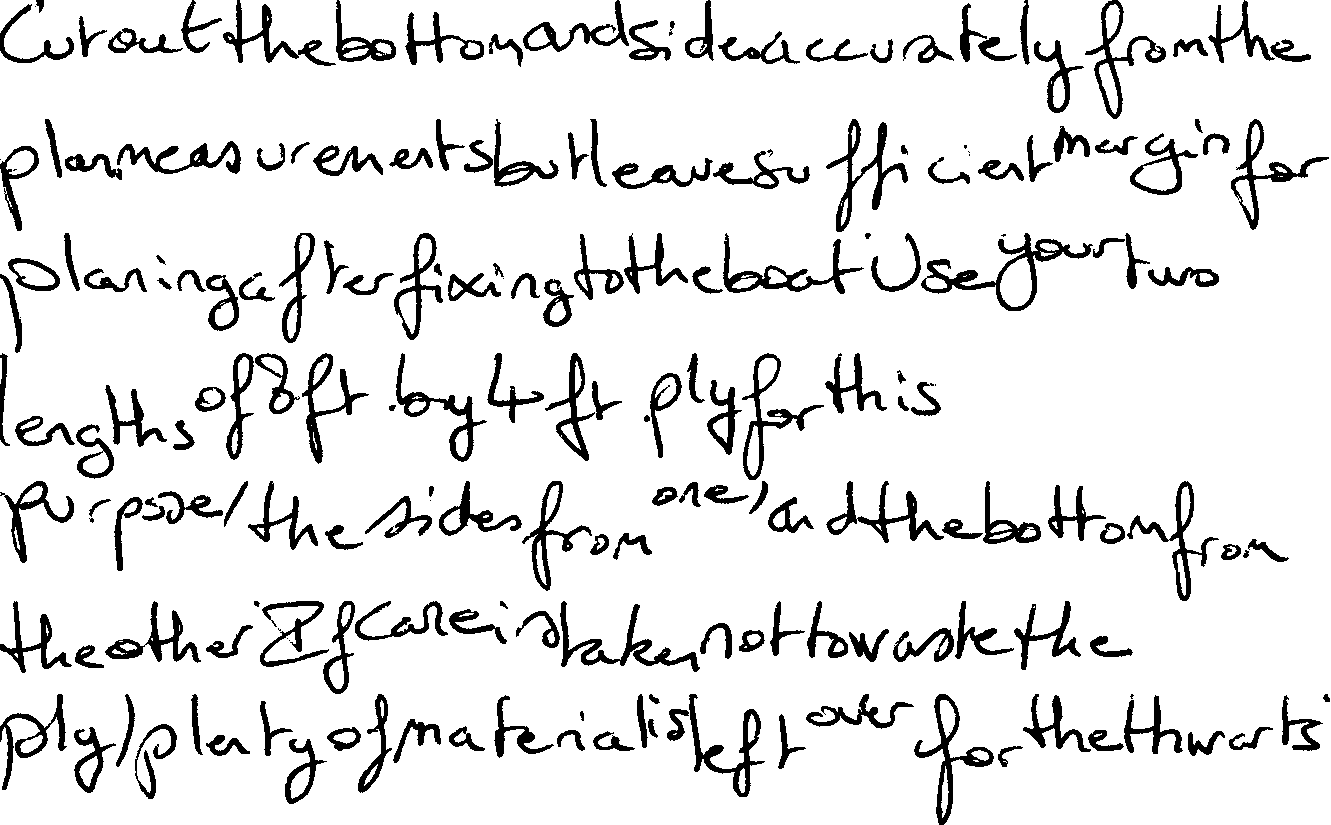 Cut out the bottom, and sides accurately from the
plan, measurements but leave sufficient margin for
planing after fixing to the boat. Use your two
lengths of 8 ft. by 4 ft. ply for this
purpose, the sides from one, and the bottom from
the other. If care is taken, not to waste the
ply, plenty of material is left over for the thwarts.